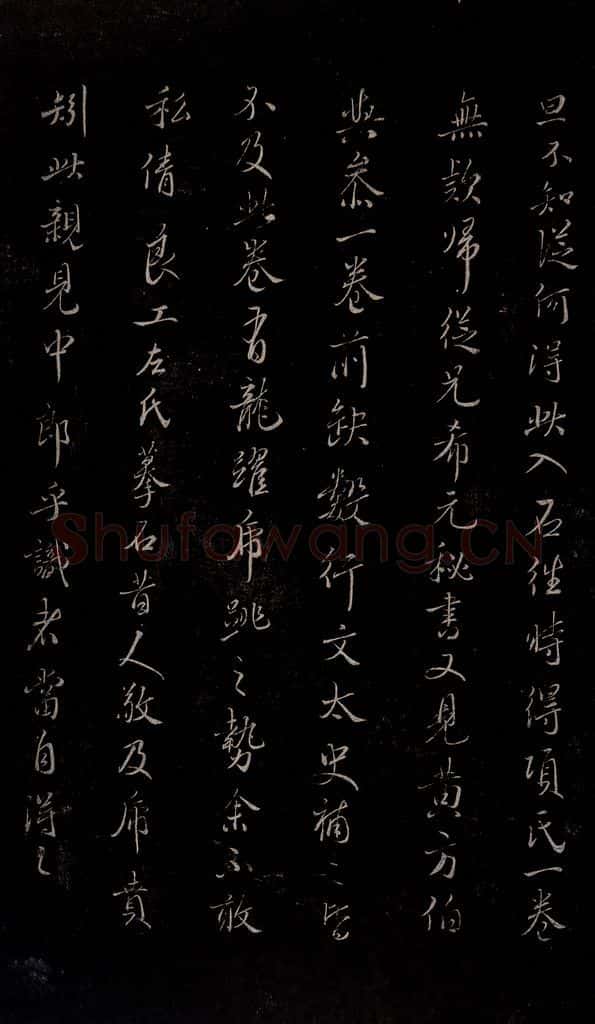 旦不知從何得此入石往時得項氏一卷
無款歸從兄希元秘書又見黄方伯
與參一卷前缺數行文太史補之皆
不及此卷有龍躍虎跳之勢余不敢
私倩良工左氏摹石昔人敬及虎賁
矧此親見中郎乎識者當自得之
Shufawang.CN